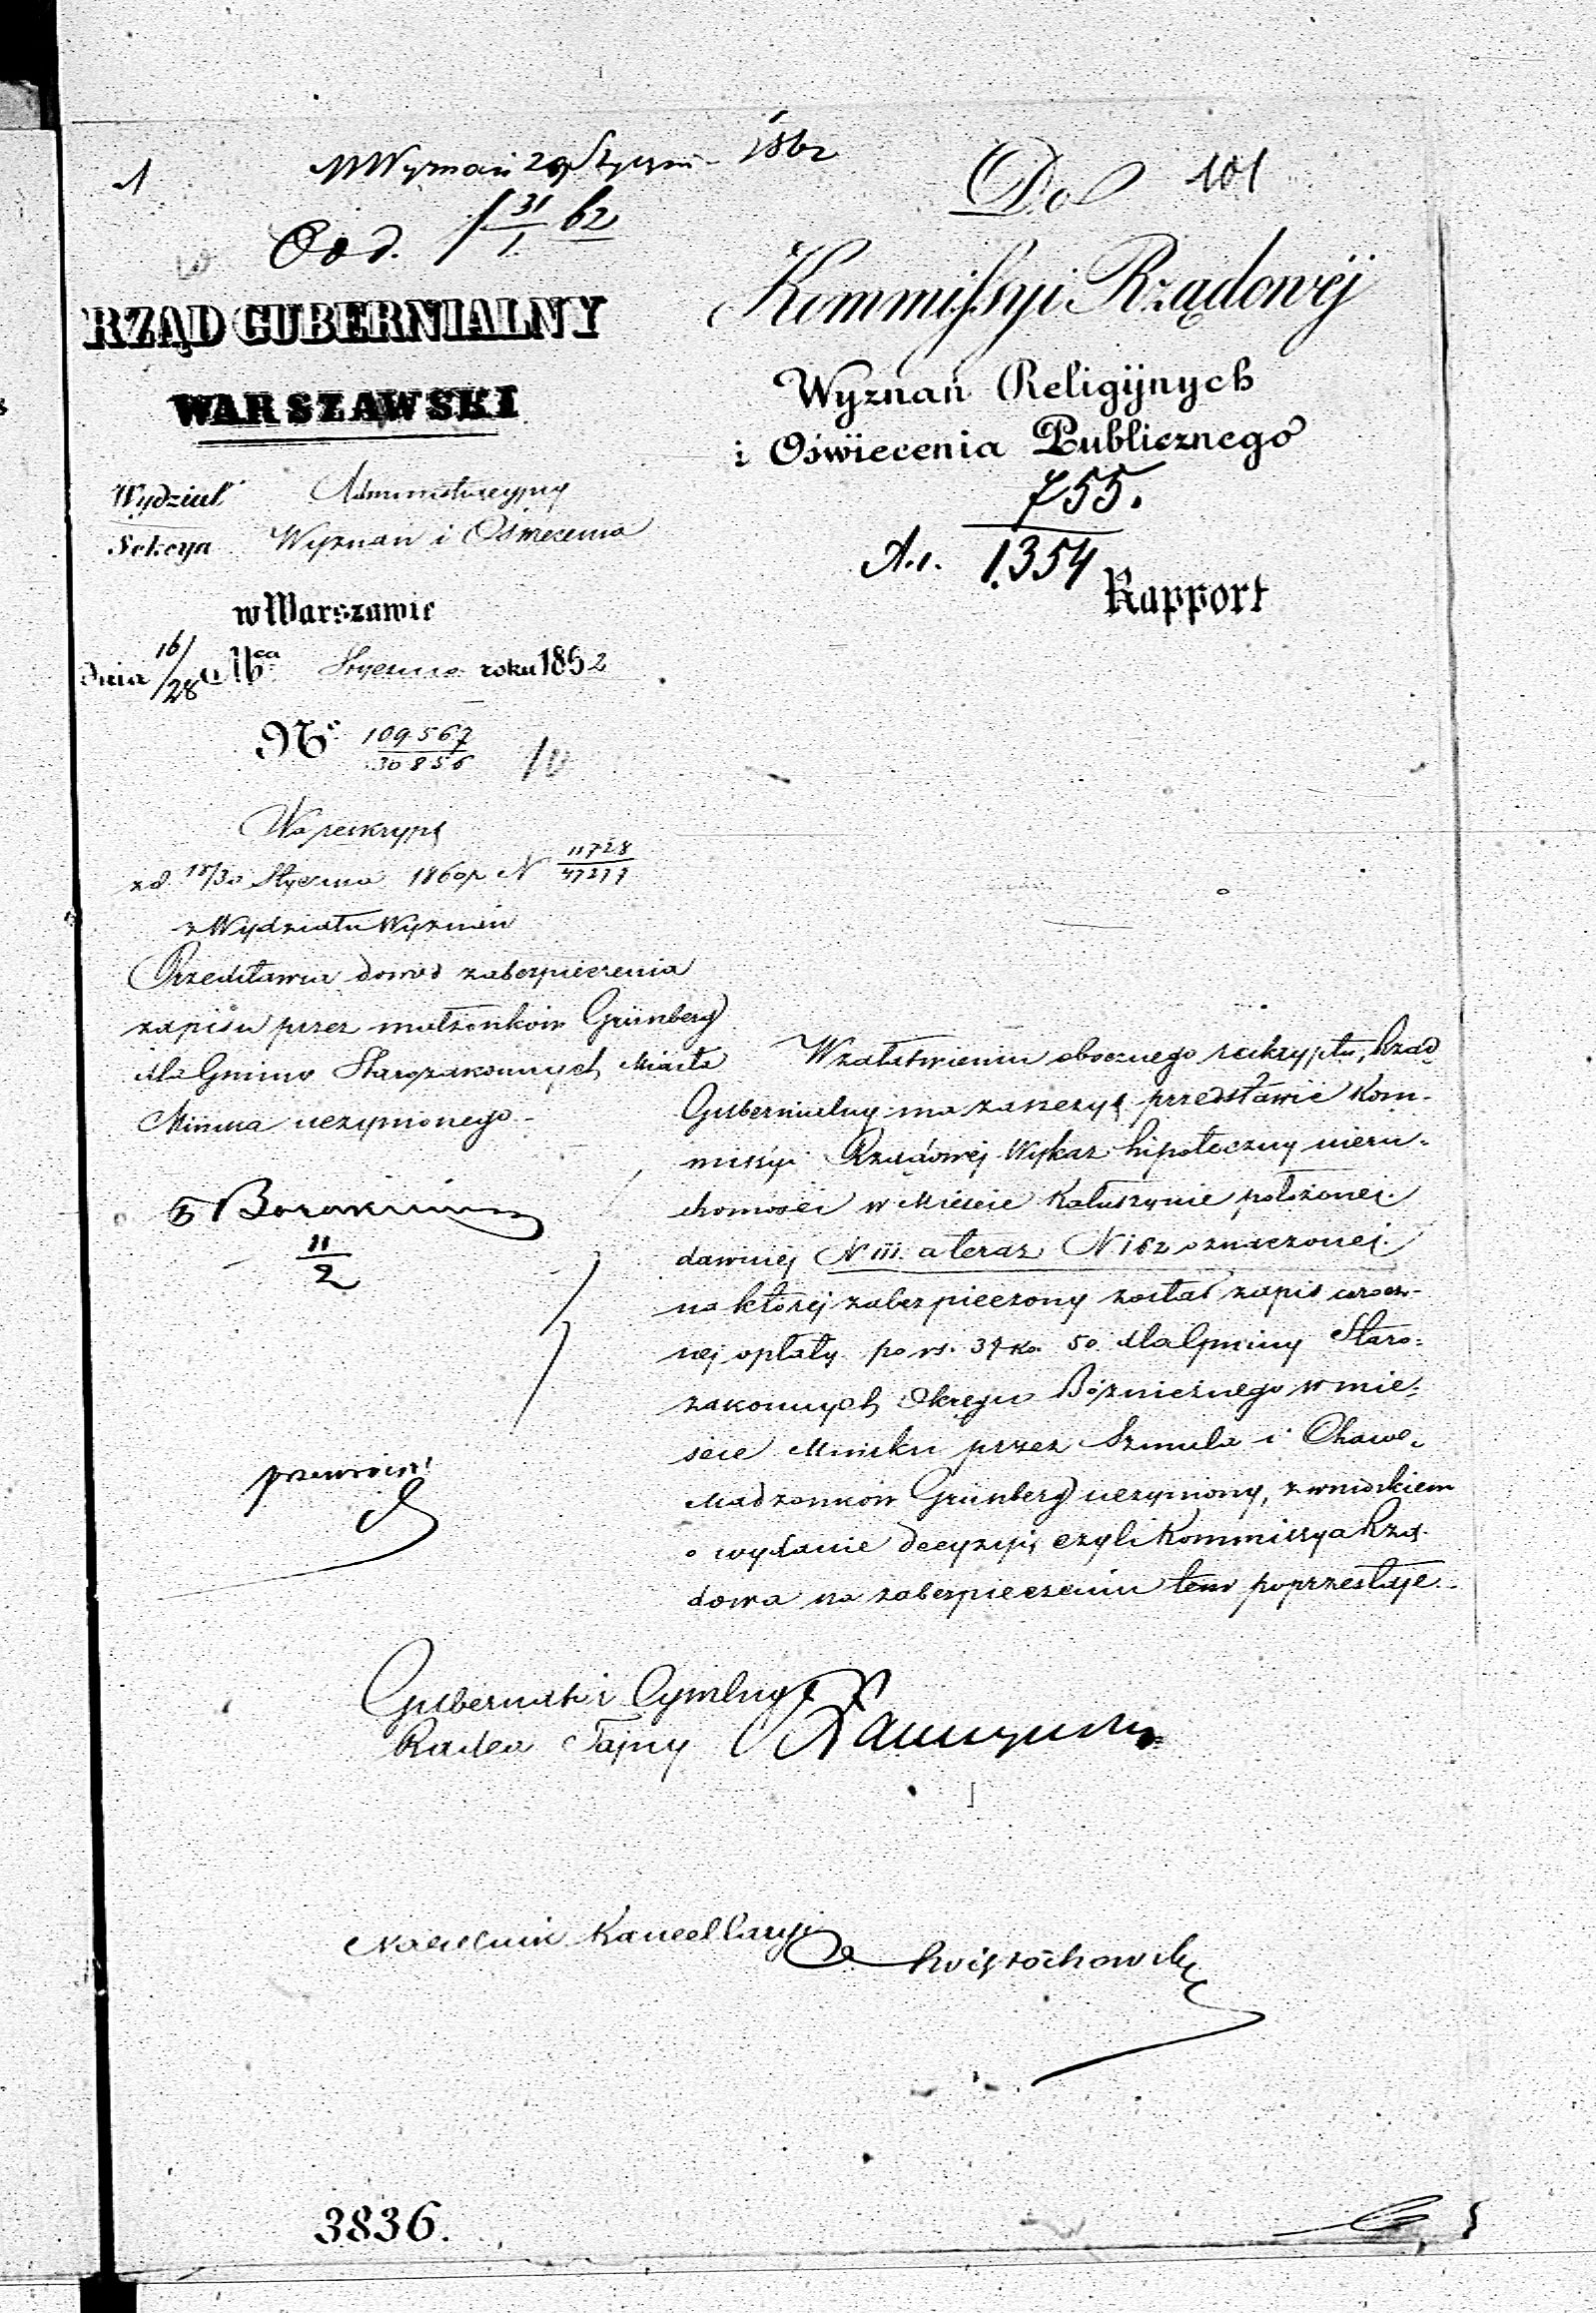 1
W Wyznań 29 Styczn 1862
Odd. 31/1 62
RZĄD GUBERNIALNY
WARSZAWSKI
Wydział Administracyjny
Sekcya Wyznań i Oświecenia
w Warszawie
dnia 16/28 Mca Stycznia roku 1862
No 109567/30856
Na reskrypt
z d. 18/30 Stycznia 1860 r. N 11728/47277
z Wydziału Wyznań
Przedstawia dowód zabezpieczenia
zapisu przez małżonków Grünberg
dla Gminy Starozakonnych Miasta
Mińska uczynionego.
11/2
Do 101
Kommissyi Rządowéj
Wyznań Religijnych
i Oświecenia Publicznego
755.
1354
Rapport
W załatwieniu obocznego reskryptu, Rząd
Gubernialny ma zaszczyt przedstawić Kom-
missyi Rządowej Wykaz hipoteczny nieru-
chomości w Mieście Kałuszynie położonej
dawniej N 111. a teraz N 162 oznaczonej.
na której zabezpieczony został zapis wrocz-
nej opłaty po rs. 37 ko. 50. dla Gminy Staro-
zakonnych Okręgu Bóżnicznego w mie-
ście Mińsku przez Szmula i Chawę
Małżonków Grünberg uczyniony, z wnioskiem
o wydanie decyzyi, czyli Kommissya Rzą-
dowa na zabezpieczeniu tem poprzestaje.
przewróć!
Gubernator Cywilny
Radca Tajny
Naczelnik Kancellaryi
3836.